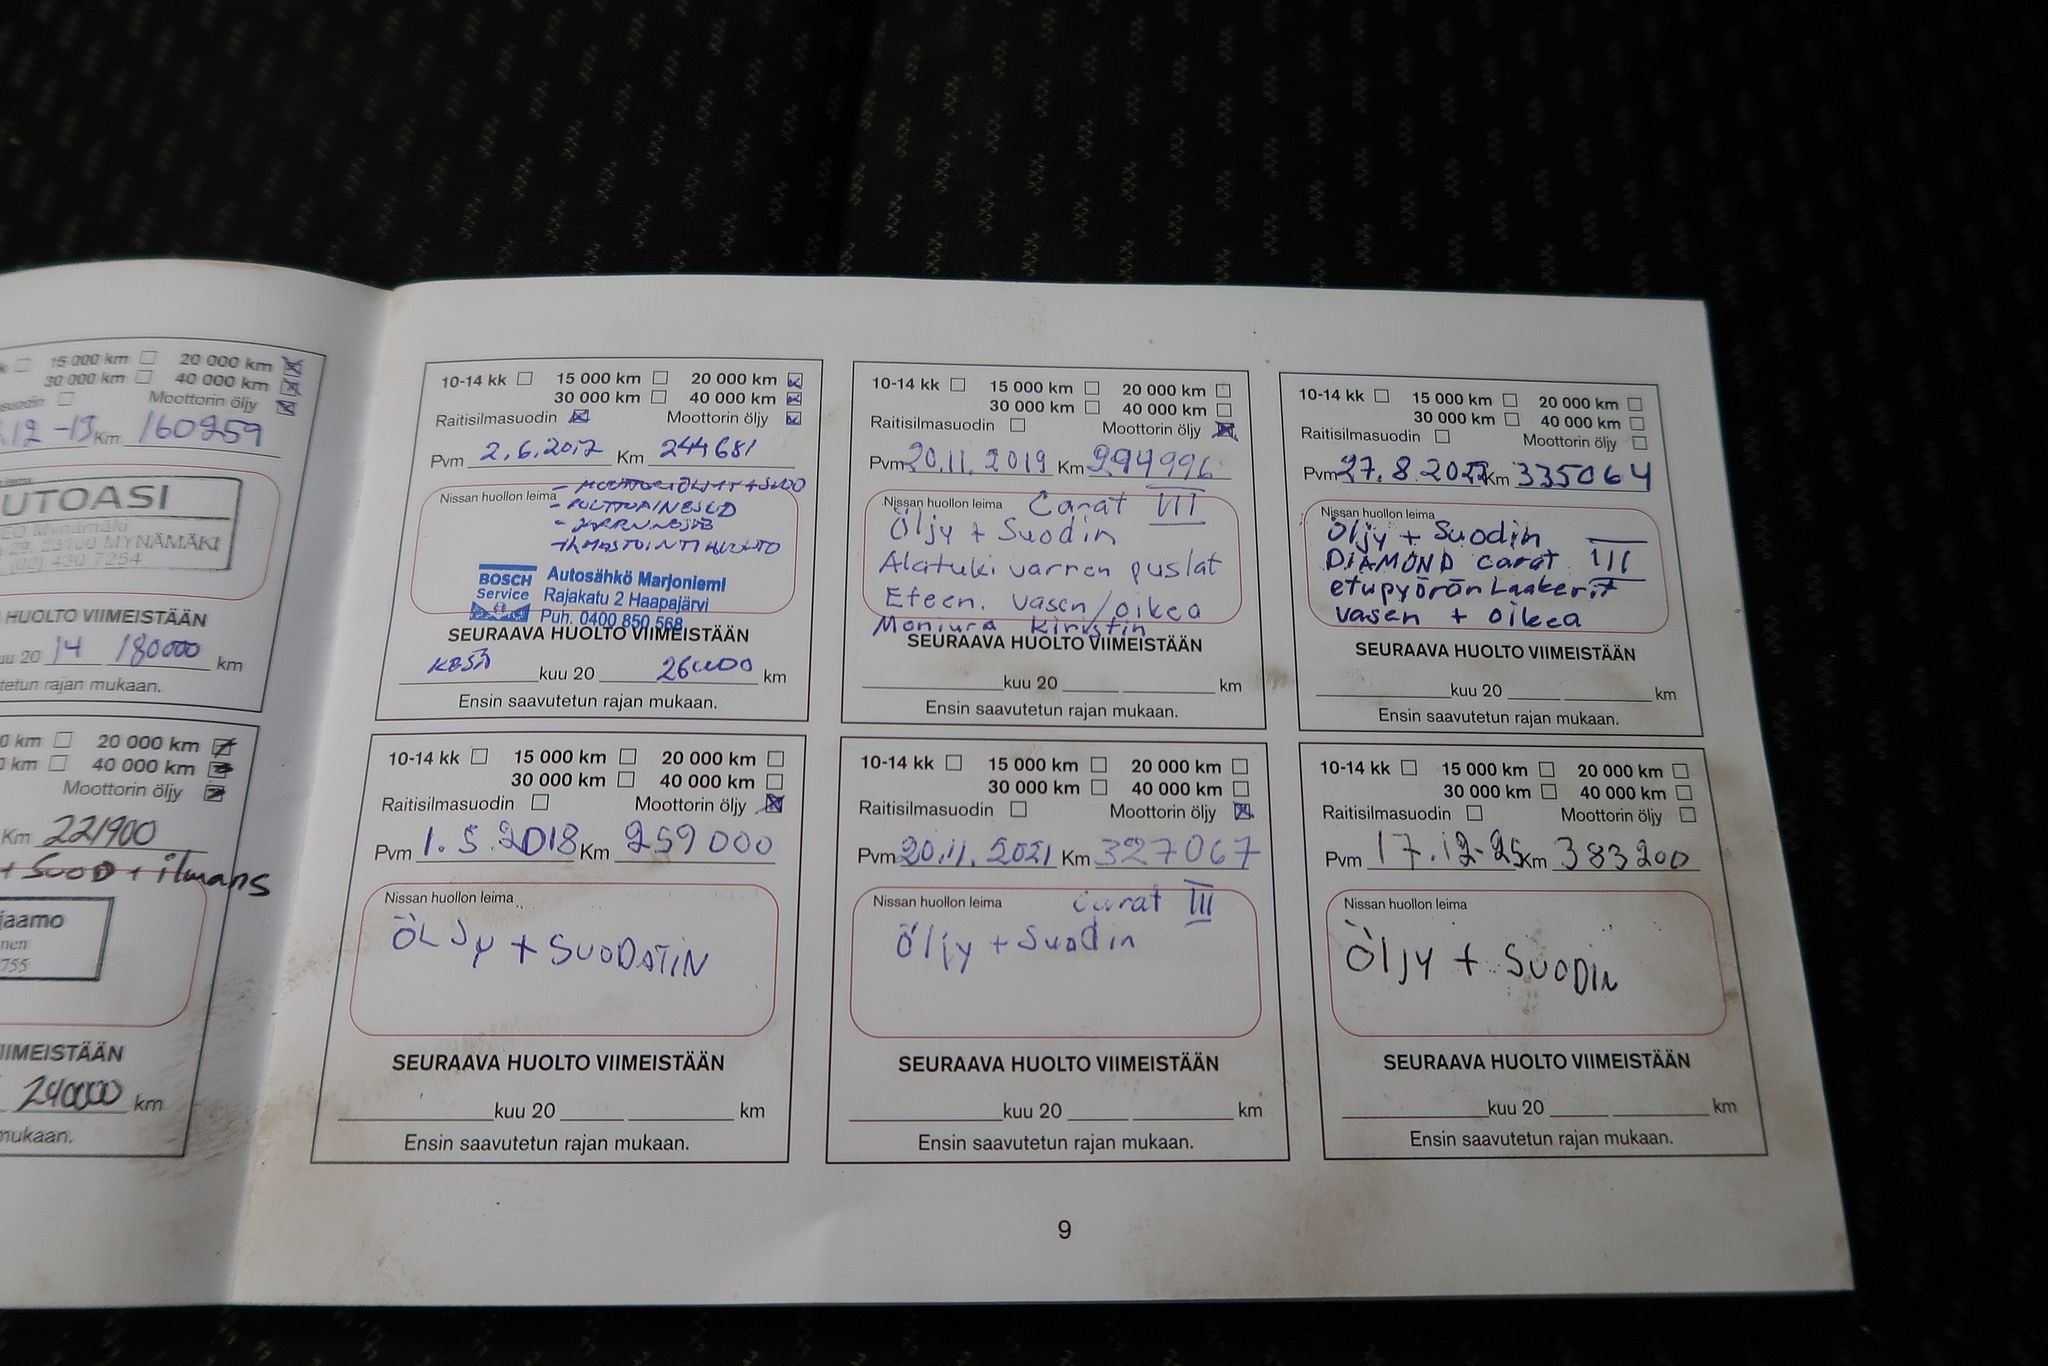 15 000 km 20 000 km
30 000 km 40 000 km
Moottorin öljy
12 -13 Km 160259
UTOASI
MYNÄMÄKI
23100 MYNÄMÄKI
(02) 430 7254
HUOLTO VIIMEISTÄÄN
uu 20 14 180000 km
tetun rajan mukaan.
0 km 20 000 km
0 km 40 000 km
Moottorin öljy
Km 221900
+ SUOD + ilmans
jaamo
nen
755
VIIMEISTÄÄN
240000 km
mukaan.
10-14 kk 15 000 km 20 000 km
30 000 km 40 000 km
Raitisilmasuodin Moottorin öljy
Pvm 2.6.2017 Km 244681
Nissan huollon leima
- POLTTOAINESUD
- JARRUNESTE
- ILMASTOINTIHUOLTO
BOSCH Service
Autosähkö Marjoniemi
Rajakatu 2 Haapajärvi
Puh. 0400 850 568
SEURAAVA HUOLTO VIIMEISTÄÄN
KESÄ kuu 20 260000 km
Ensin saavutetun rajan mukaan.
10-14 kk 15 000 km 20 000 km
30 000 km 40 000 km
Raitisilmasuodin Moottorin öljy
Pvm 1.5.2018 Km 259000
Nissan huollon leima
ÖLJY + SUODATIN
SEURAAVA HUOLTO VIIMEISTÄÄN
kuu 20 km
Ensin saavutetun rajan mukaan.
10-14 kk 15 000 km 20 000 km
30 000 km 40 000 km
Raitisilmasuodin Moottorin öljy
Pvm 20.11.2019 Km 294996
Nissan huollon leima Carat III
Öljy + Suodin
Alatukivarren puslat
Eteen. vasen/oikea
Moniura kiristin
SEURAAVA HUOLTO VIIMEISTÄÄN
kuu 20 km
Ensin saavutetun rajan mukaan.
10-14 kk 15 000 km 20 000 km
30 000 km 40 000 km
Raitisilmasuodin Moottorin öljy
Pvm 20.11.2021 Km 327067
Nissan huollon leima Carat III
Öljy + Suodin
SEURAAVA HUOLTO VIIMEISTÄÄN
kuu 20 km
Ensin saavutetun rajan mukaan.
10-14 kk 15 000 km 20 000 km
30 000 km 40 000 km
Raitisilmasuodin Moottorin öljy
Pvm 27.8.2022 Km 335064
Nissan huollon leima
Öljy + Suodin
DIAMOND carat III
etupyörön Laakerit
vasen + oikea
SEURAAVA HUOLTO VIIMEISTÄÄN
kuu 20 km
Ensin saavutetun rajan mukaan.
10-14 kk 15 000 km 20 000 km
30 000 km 40 000 km
Raitisilmasuodin Moottorin öljy
Pvm 17.12-25 Km 383200
Nissan huollon leima
Öljy + SUODIN
SEURAAVA HUOLTO VIIMEISTÄÄN
kuu 20 km
Ensin saavutetun rajan mukaan.
9